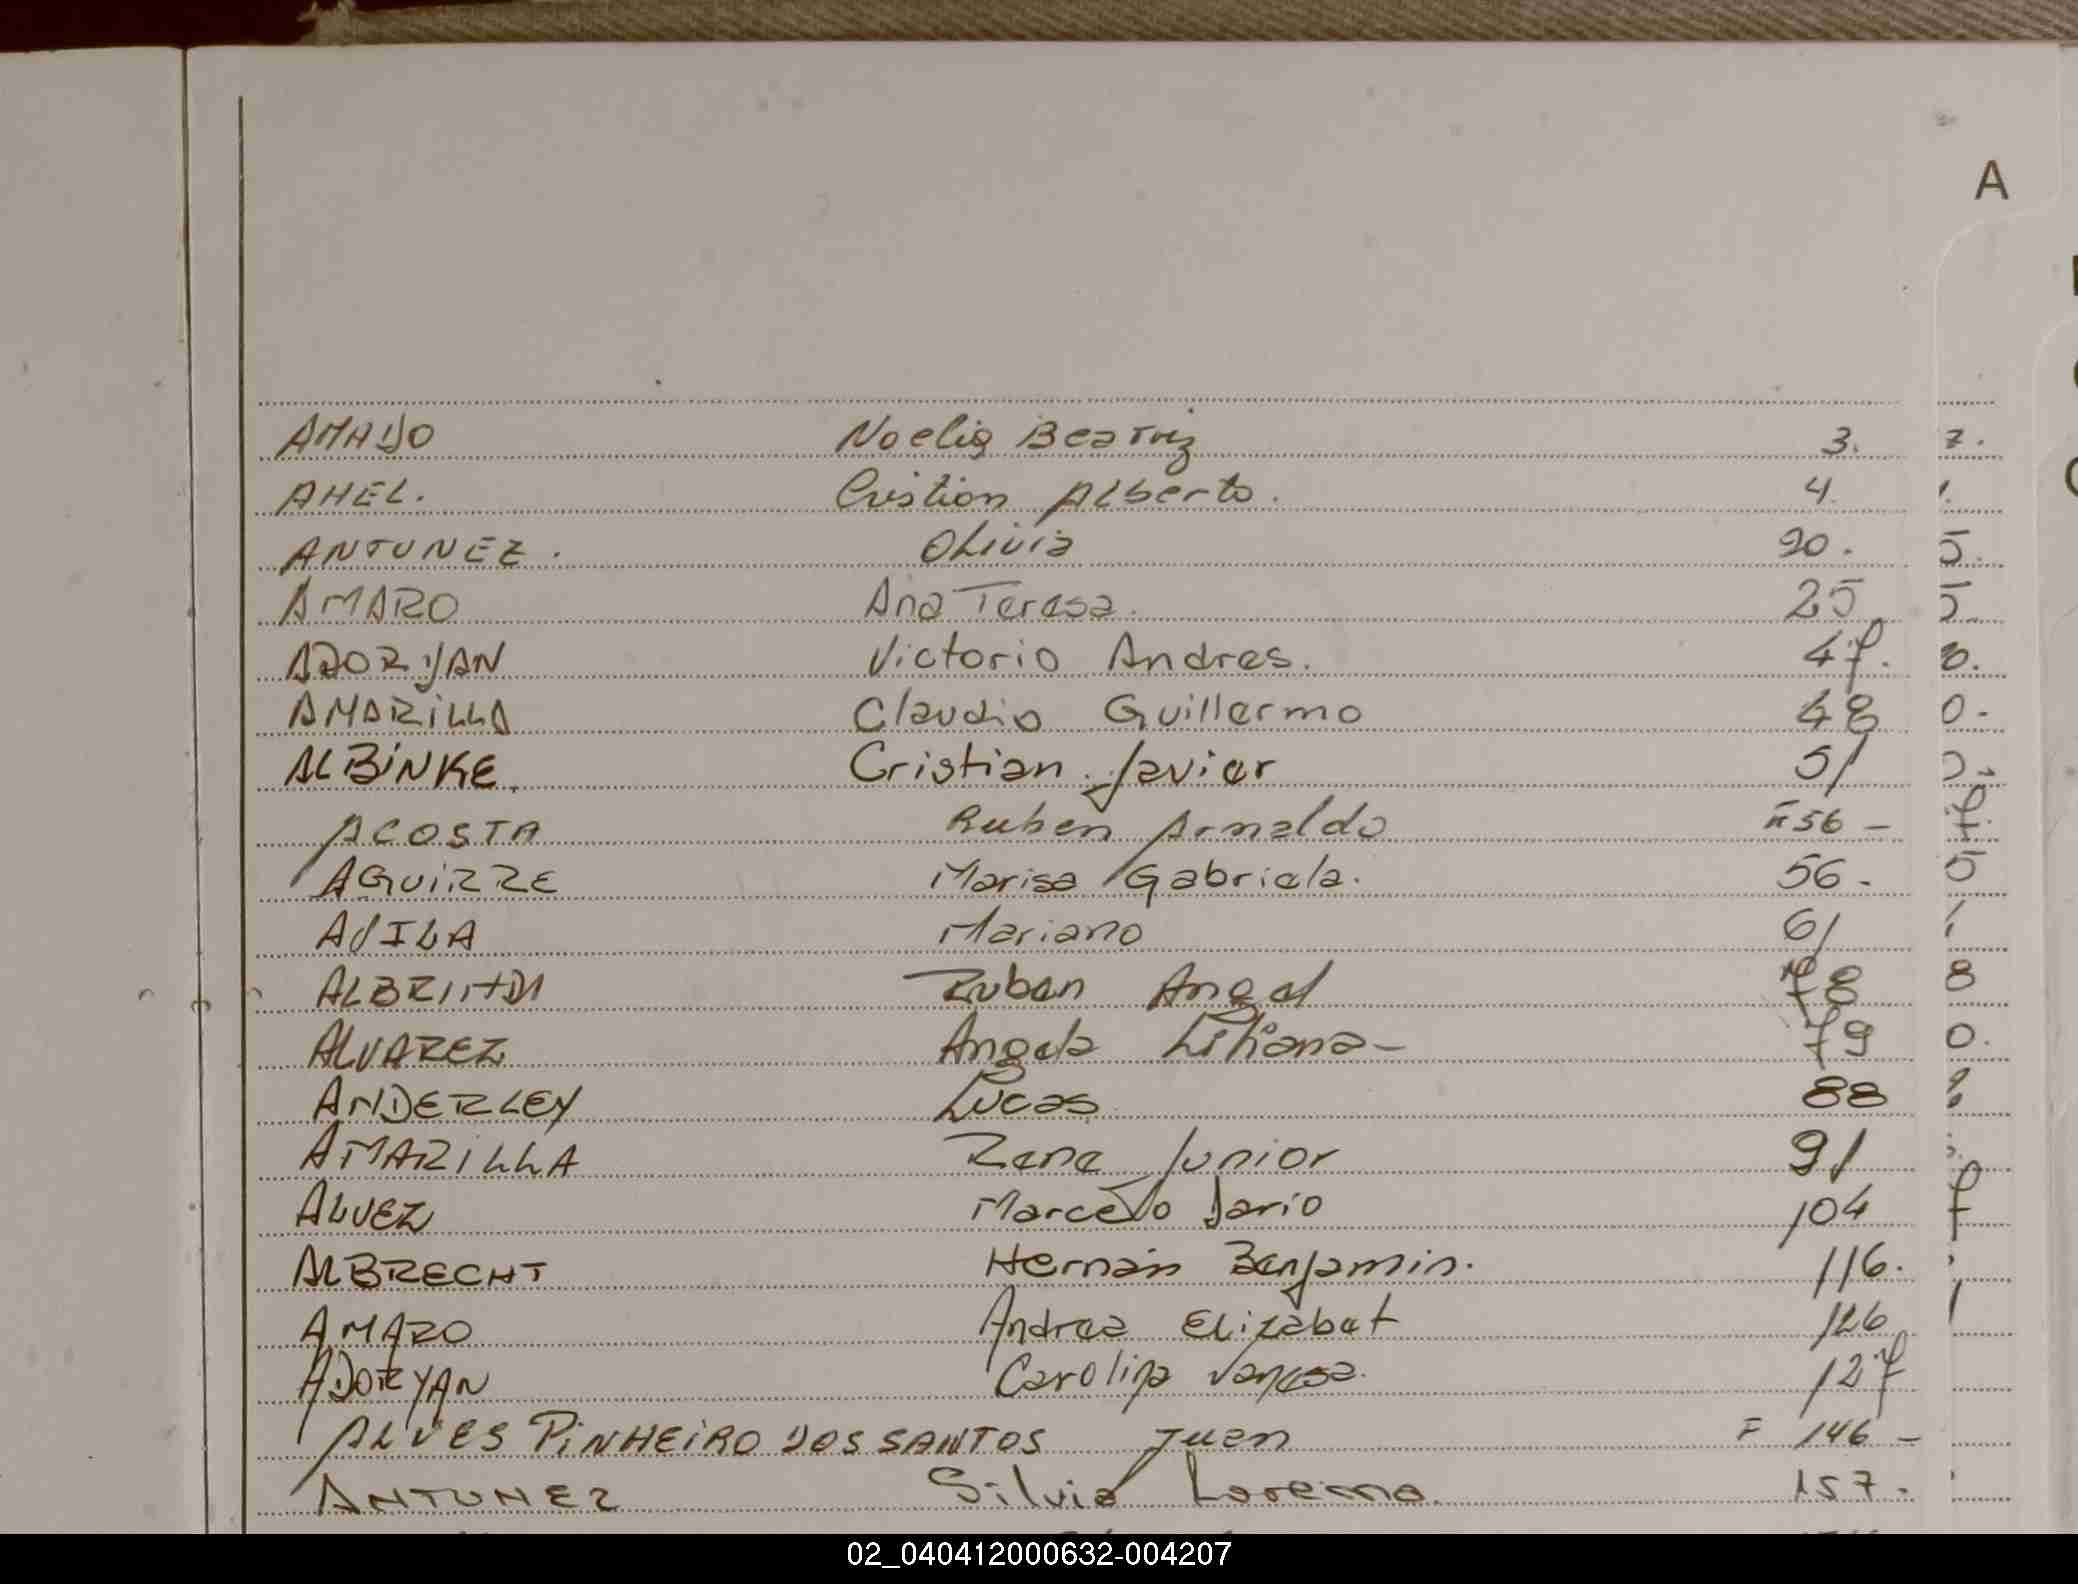 A
AMADO Noelia Beatriz 3.
AHEL. Cristian Alberto. 4.
ANTUNEZ. Olivia 20.
AMARO Ana Teresa. 25
ADORYAN Victorio Andres. 47.
AMARILLA Claudio Guillermo 48
ALBINKE. Cristian Javier 51
ACOSTA Ruben Arnaldo 56 -
AGUIRRE Marisa Gabriela. 56.
AVILA Mariano 61
Ruben Angel 78
ALVAREZ Angela Liliana - 79
ANDERLEY Lucas 88
AMARILLA Rene Junior 91
ALVEZ Marcelo Dario 104
ALBRECHT Hernán Benjamin. 116.
AMARO Andrea Elizabet 126
ADORYAN Carolina Vanesa. 127
ALVES PINHEIRO DOS SANTOS Juan F 146 -
ANTUNEZ Silvia Lorena 157.
02_040412000632-004207